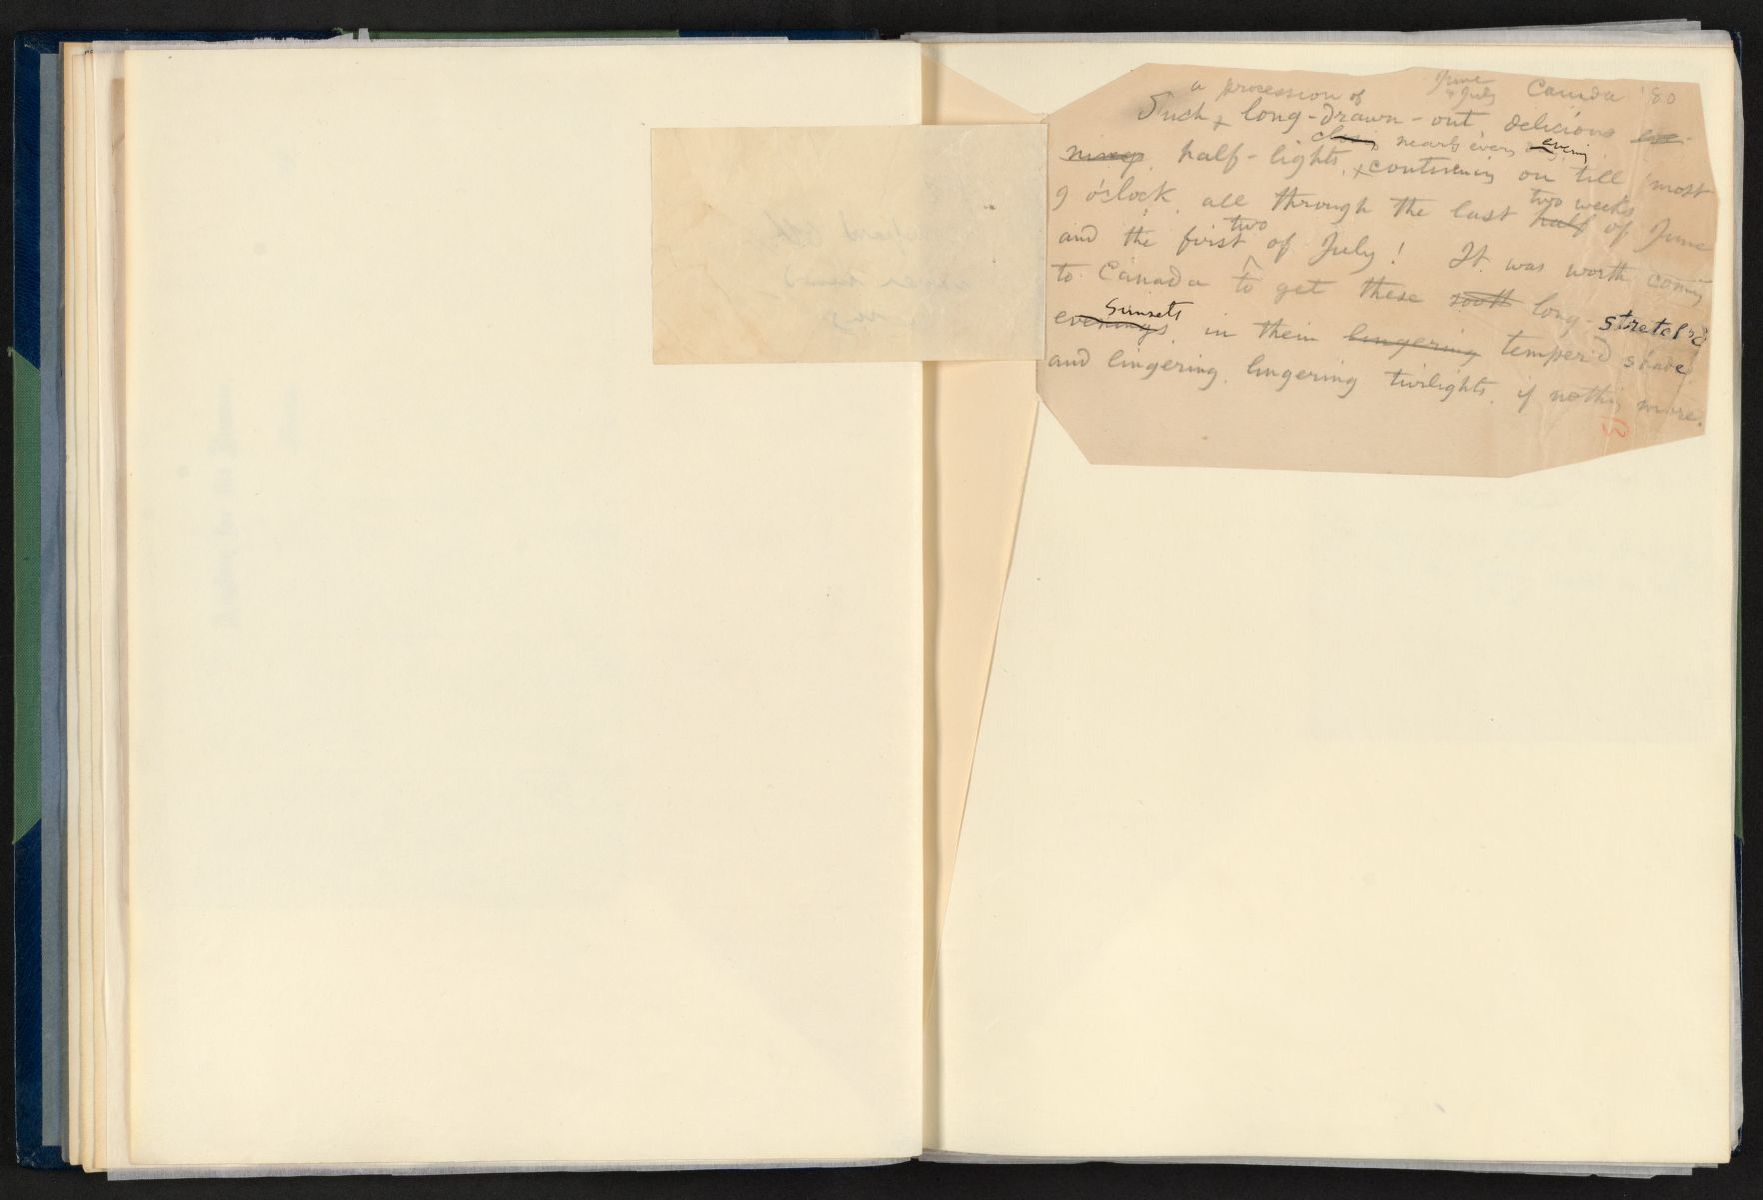 June
& July Canada '80
a procession of
Such + long-drawn-out delicious eve-
closing nearly every evening
nings half-lights, + continuing on till 'most
9 o'clock all through the last half of June
two weeks
and the first of July! It was worth coming
two
to Canada to get these long-stretch'd
Sunsets
evenings in their lingering temper'd shade
and lingering, lingering twilights, if nothing more.